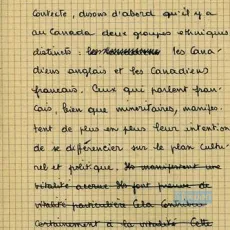 contexte, disons d'abord qu'il y a
au Canada deux groupes ethniques
distincts : les Cana-
diens anglais et les Canadiens
français. Ceux qui parlent fran-
çais, bien que minoritaires, manifes-
tent de plus en plus leur intention
de se différencier sur le plan cultu-
rel et politique. Ils manifestent une
vitalité accrue Ils font preuve de
vitalité particulière Cela
certainement à la vitalité Cette